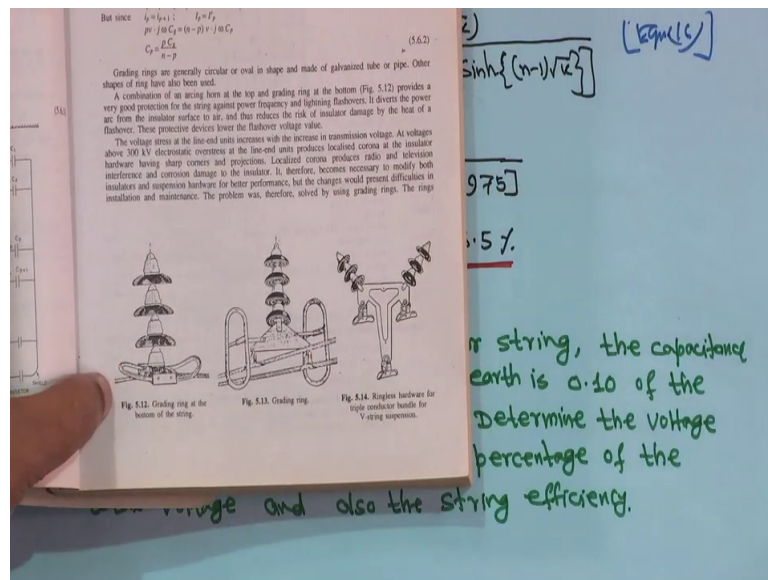 But since   i_p = i_{p+1} ;   I_p = I'_p
pv · jωC_s = (n − p) v · jωC_p
C_p = pC_s / (n − p)
(5.6.2)
Grading rings are generally circular or oval in shape and made of galvanized tube or pipe. Other
shapes of ring have also been used.
A combination of an arcing horn at the top and grading ring at the bottom (Fig. 5.12) provides a
very good protection for the string against power frequency and lightning flashovers. It diverts the power
arc from the insulator surface to air, and thus reduces the risk of insulator damage by the heat of a
flashover. These protective devices lower the flashover voltage value.
The voltage stress at the line-end units increases with the increase in transmission voltage. At voltages
above 300 kV electrostatic overstress at the line-end units produces localised corona at the insulator
hardware having sharp corners and projections. Localized corona produces radio and television
interference and corrosion damage to the insulator. It, therefore, becomes necessary to modify both
insulators and suspension hardware for better performance, but the changes would present difficulties in
installation and maintenance. The problem was, therefore, solved by using grading rings. The rings
Fig. 5.12. Grading ring at the
bottom of the string.
Fig. 5.13. Grading ring.
Fig. 5.14. Ringless hardware for
triple conductor bundle for
V-string suspension.
[Eqn(16)]
sinh{(n-1)√k}]
975]
.5 %.
string, the capacitance
earth is 0.10 of the
Determine the voltage
percentage of the
and also the string efficiency.